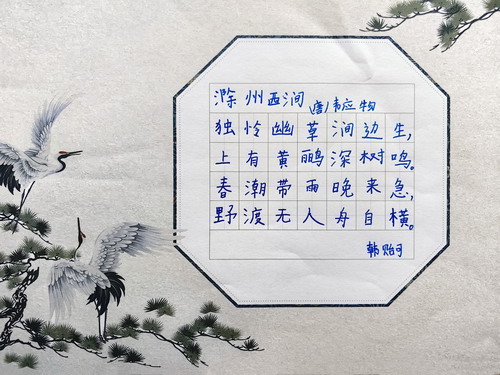 滁州西涧 (唐)韦应物
独怜幽草涧边生,
上有黄鹂深树鸣。
春潮带雨晚来急,
野渡无人舟自横。
韩贻可